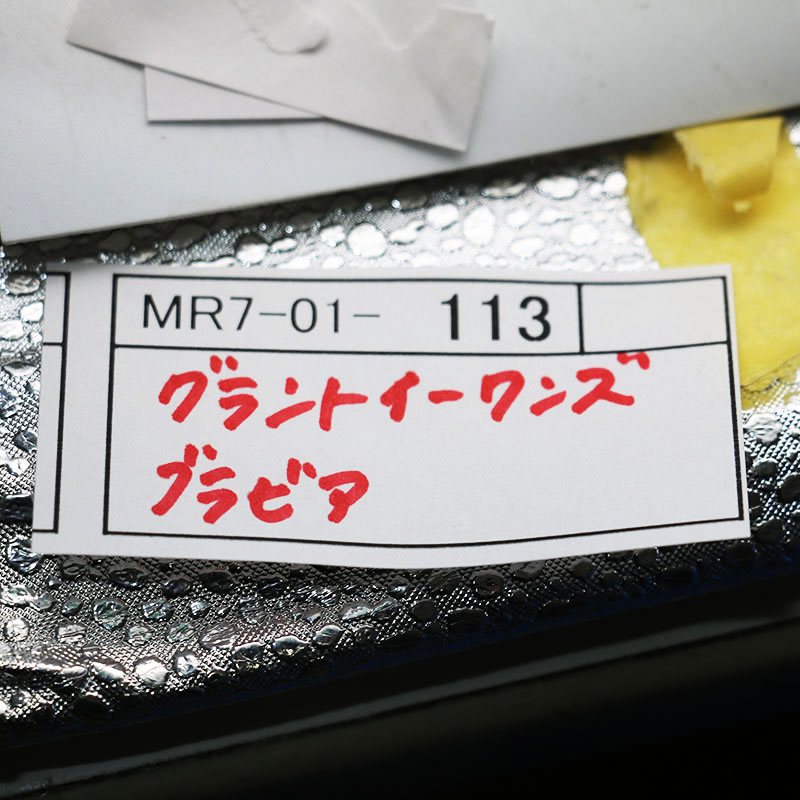 MR7-01- 113
グラントイーワンズ
グラビア